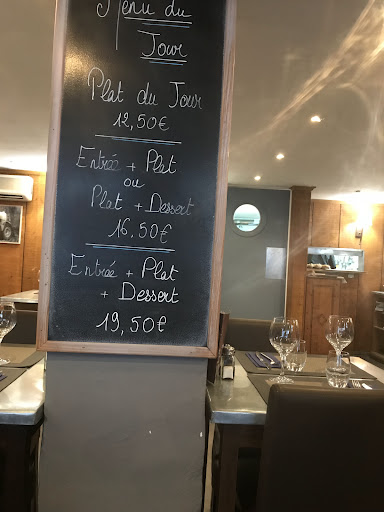 Menu du
Jour
Plat du Jour
12,50€
Entrée + Plat
ou
Plat + Dessert
16,50€
Entrée + Plat
+ Dessert
19,50€